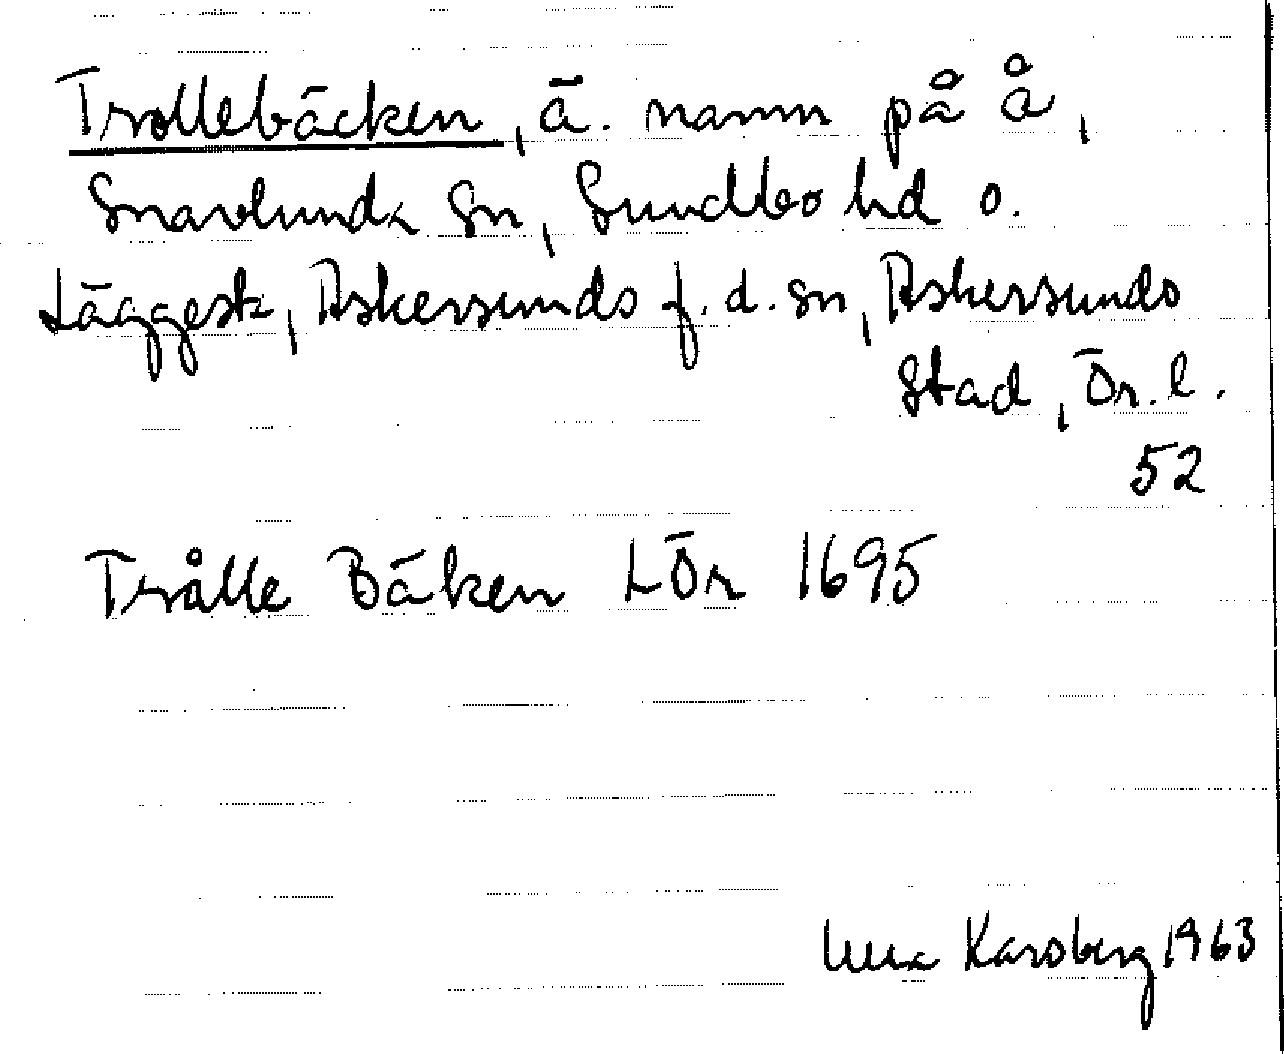 Trollebäcken, ä. namn på å,
Snavlunda sn, Sundbo hd o.
Läggesta, Askersunds f.d. sn, Askersunds
stad, Ör. l.
52
Trålle Bäken LÖr 1695
Karsberg 1963